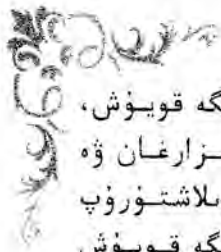 گە قويۇش،
ـزارغان ۋە
ـلاشتۇرۇپ
گە قويۇش